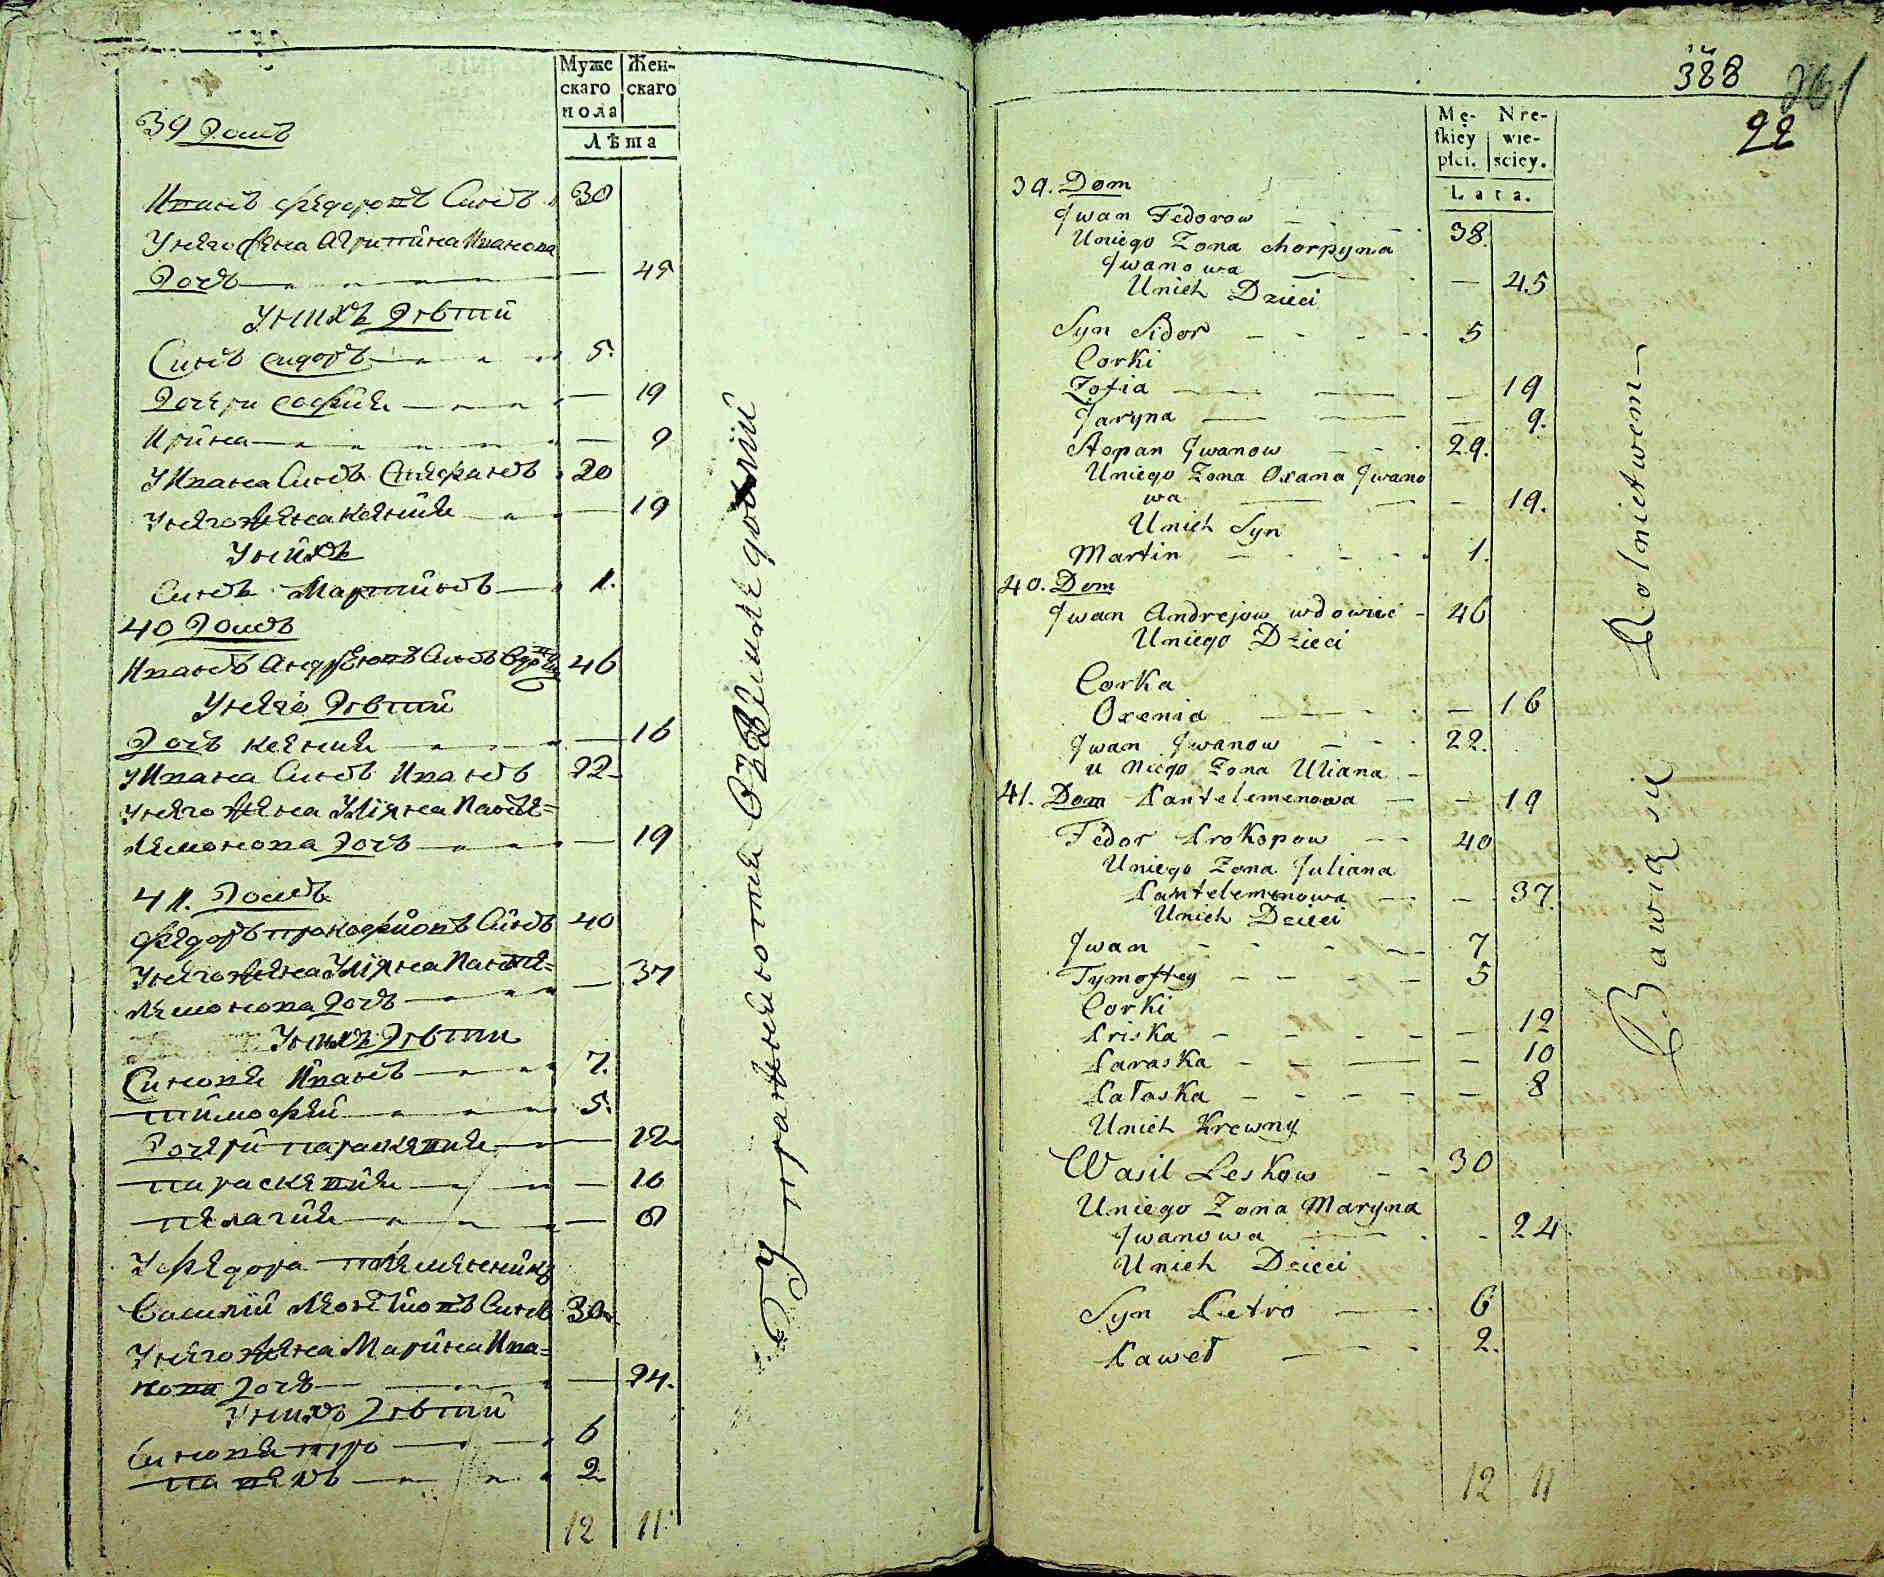 Муже
скаго
пола
Жен-
скаго
Лѣта
39 Домъ
Иванъ Федоровъ Синъ 30
У него Жена Агрипина Иванова
Дочь — 45
У нихъ Дѣти
Синъ Сидоръ — 5.
Дочери София — 19
Ирина — 9
У Ивана Синъ Стефанъ 20
У него Жена Ксения — 19
У нихъ
Синъ Мартинъ — 1.
40 Домъ
Иванъ Андрѣевъ Синъ 46
У него Дѣти
Дочь Ксения — 16
У Ивана Синъ Иванъ 22
У него Жена Улияна Панте=
лемонова Дочь — 19
41. Домъ
Федоръ Прокофиовъ Синъ 40
У него Жена Улияна Панте=
лемонова Дочь — 37
У нихъ Дѣти
Синовя Иванъ — 7.
Тимофей — 5.
Дочери Параскевия — 12
Параскевия — 10
Пелагия — 8
У Федора племенникъ
Василий Леонтиовъ Синъ 30
У него Жена Марина Ива=
нова Дочь — 24.
У нихъ Дѣти
Синовя Петро — 6
Павелъ — 2
12 11
Упражняются в земледѣлии
388
261
92
Mę-
skiey
płci.
Nie-
wie-
sciey.
Lata.
39. Dom
Jwan Fedorow — 38.
Uniego Zona Horpyna
Jwanowa — 45
Unich Dzieci
Syn Sidor — 5
Corki
Zofia — 19
Jaryna — 9.
Stepan Jwanow — 29.
Uniego Zona Oxana Jwano
wa — 19.
Unich Syn
Martin — 1.
40. Dom
Jwan Andrejow wdowiec — 46
Uniego Dzieci
Corka
Oxenia — 16
Jwan Jwanow — 22.
u Niego Zona Uliana —
41. Dom Pantelemenowa — 19
Fedor Prokopow — 40
Uniego Zona Juliana
Pantelemonowa — 37.
Unich Dzieci
Jwan — 7
Tymoftey — 5
Corki
Priska — 12
Paraska — 10
Palaska — 8
Unich Krewny
Wasil Leskow — 30
Uniego Zona Maryna
Jwanowa — 24
Unich Dzieci
Syn Petro — 6
Paweł — 2.
12 11
Bawią się Rolnictwem